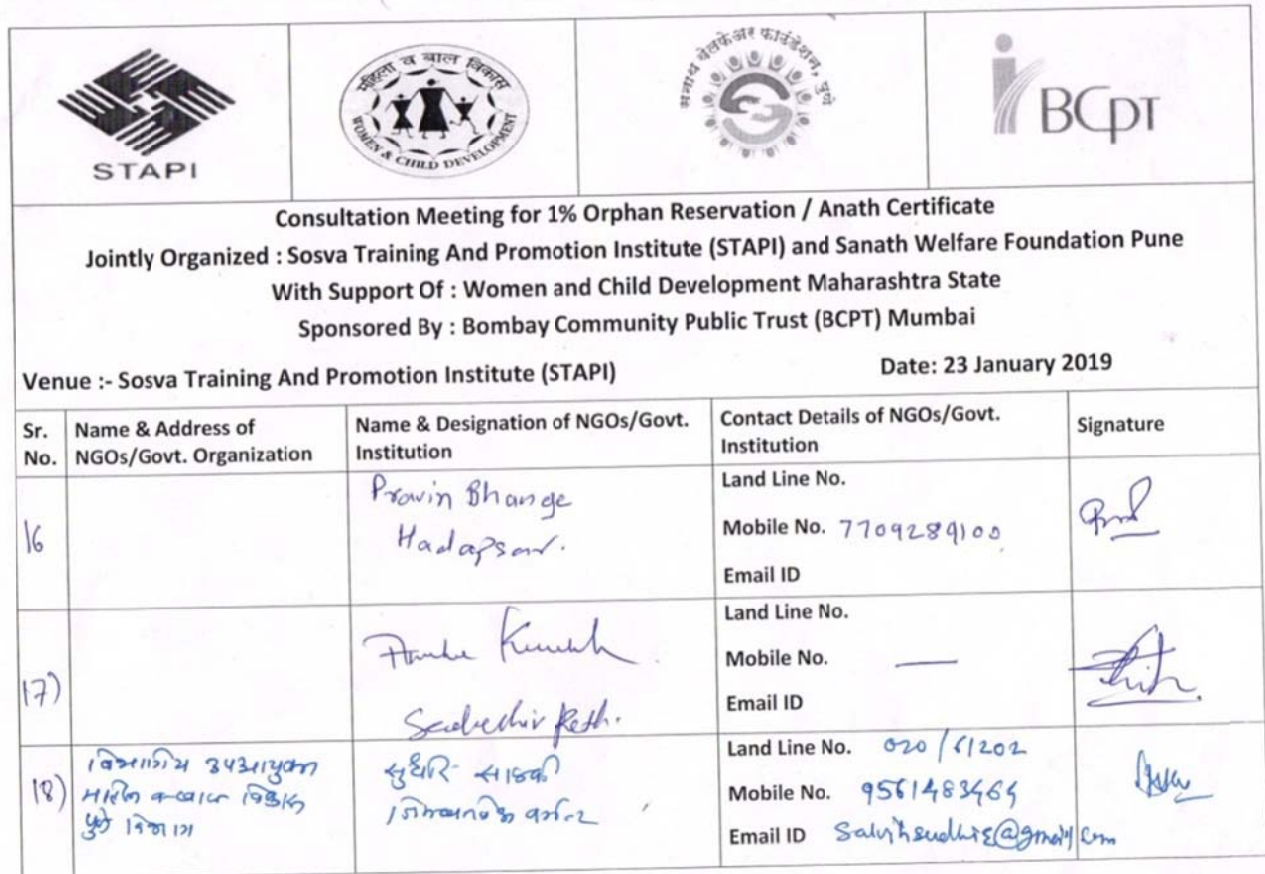 STAPI
महिला व बाल विकास
WOMEN & CHILD DEVELOPMENT
सनाथ वेलफेअर फाउंडेशन, पुणे
BCPT
Consultation Meeting for 1% Orphan Reservation / Anath Certificate
Jointly Organized : Sosva Training And Promotion Institute (STAPI) and Sanath Welfare Foundation Pune
With Support Of : Women and Child Development Maharashtra State
Sponsored By : Bombay Community Public Trust (BCPT) Mumbai
Venue :- Sosva Training And Promotion Institute (STAPI) Date: 23 January 2019
Sr. No. Name & Address of NGOs/Govt. Organization Name & Designation of NGOs/Govt. Institution Contact Details of NGOs/Govt. Institution Signature
16
Pravin Bhange
Hadapsar.
Land Line No.
Mobile No. 7709289100
Email ID
17)
Land Line No.
Mobile No. —
Email ID
18)
पुणे विभाग
Land Line No. 020/61202
Mobile No. 9561483464
Email ID